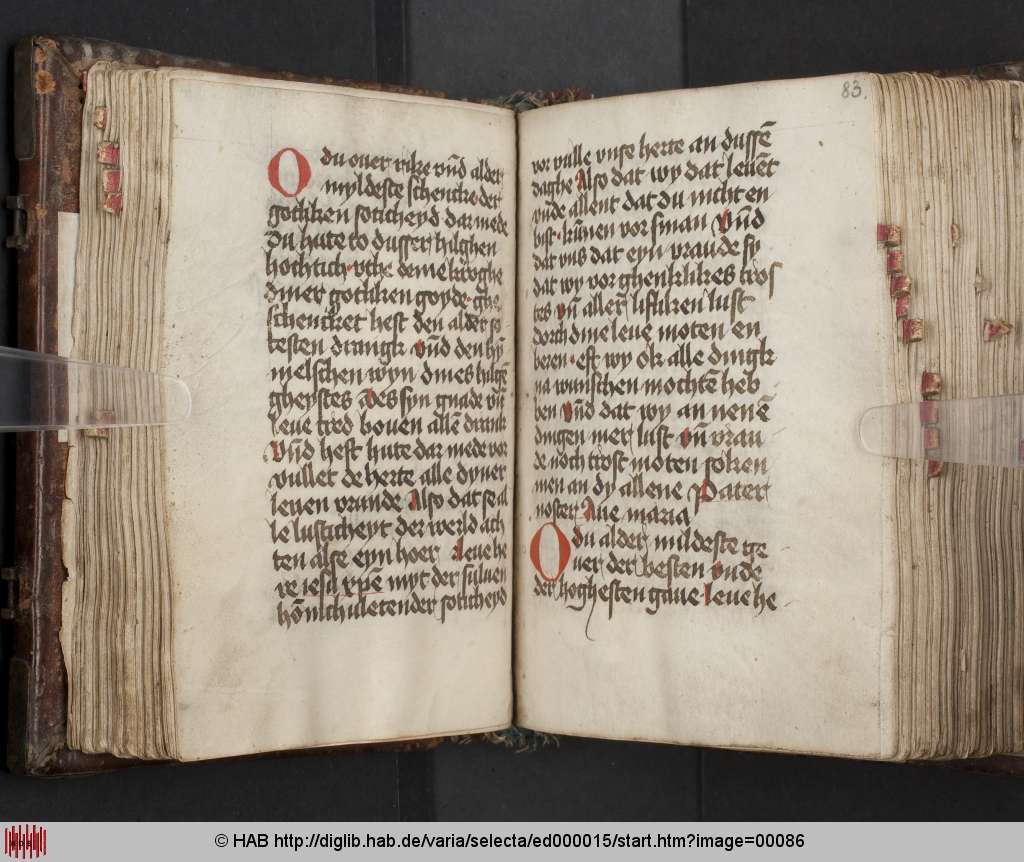 O du ouer rike vn̄d alder
myldeste schencke der
gotliken soticheyd dar mede
Du hute to dusser hilghen
hochtich vthe deme kroghe
diner gotliken goyde ghe
schencket hest den alder so
testen drangk vn̄d den hȳ
melschen wyn dines hilgē
gheystes Des syn gnade vn̄
leue tred bouen allē drank
Vn̄d hest hute dar mede vor
vullet de herte alle dyner
leuen vrunde Also dat se al
le lusticheyt der werld ach
ten alse eyn hoer Leue he
re iesu xpē myt der suluen
hōnichuletender soticheyd
83.
vor vulle vnse herte an dussē
daghe Also dat wy dat leuent
vnde allent dat du nicht en
bist kunen vorsman Vn̄d
dat vns dat eyn vraude sy
dat wy vor ghenklikes tros
tes vn̄ allerl lifliken lust
dorch dine leue moten en
beren est wy ok alle dingk
na wunschen mochtē heb
ben Vn̄d dat wy an nenē
dingen mer lust vn̄ vrau
de noch trost moten soken
men an dy allene Pater
noster Aue maria
O du alder mildeste ge
uer der besten vnde
der hoghesten gaue leue he
© HAB http://diglib.hab.de/varia/selecta/ed000015/start.htm?image=00086